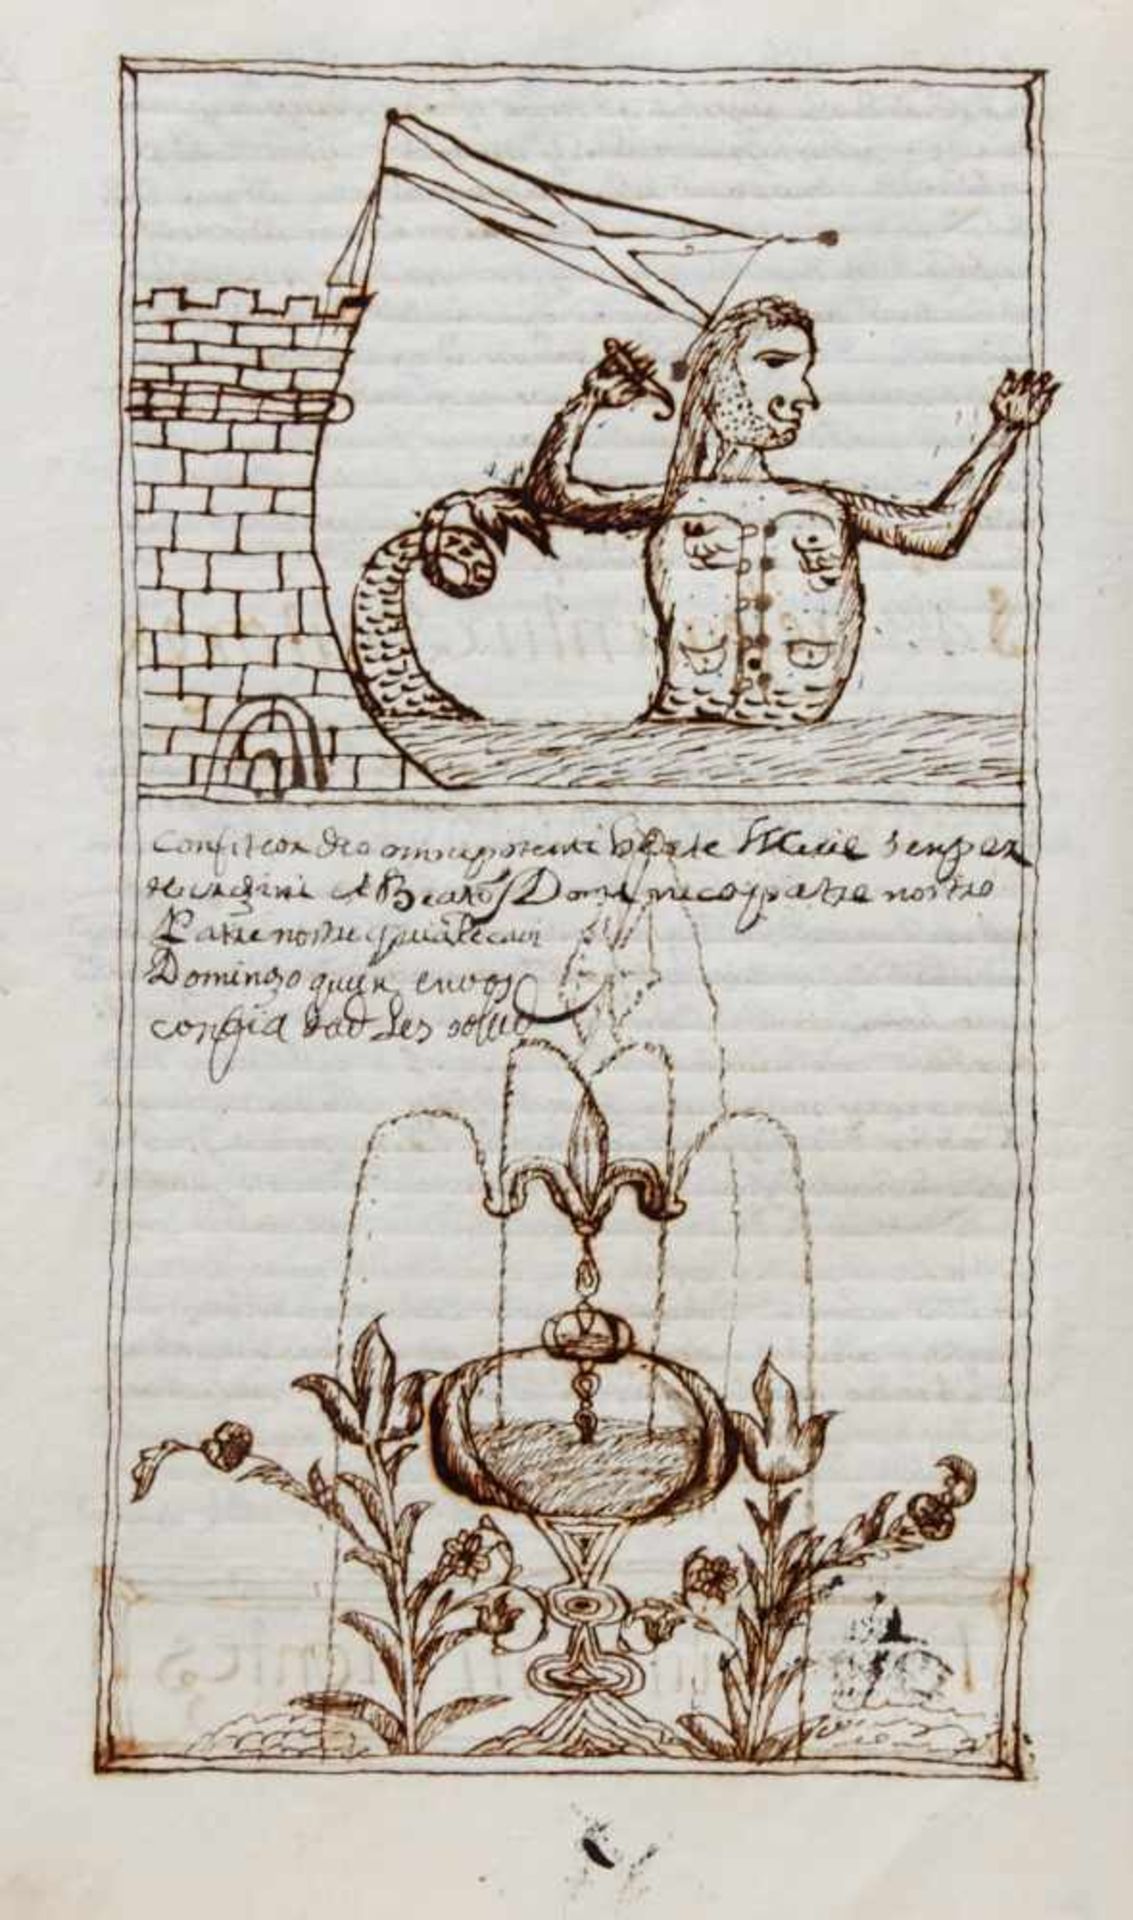 confiteor deo omnipotenti beate Marie senper
virgini et Beato Domi nico patre nostro
Patre nostre
Domingo quien en vos
confia dad les